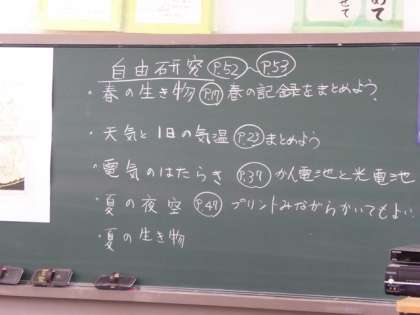 めて
せて
自由研究 P.52～P.53
・春の生き物 P.17 春の記録をまとめよう。
・天気と1日の気温 P.23 まとめよう
・電気のはたらき P.37 かん電池と光電池
・夏の夜空 P.47 プリントみながらかいてもよい
・夏の生き物